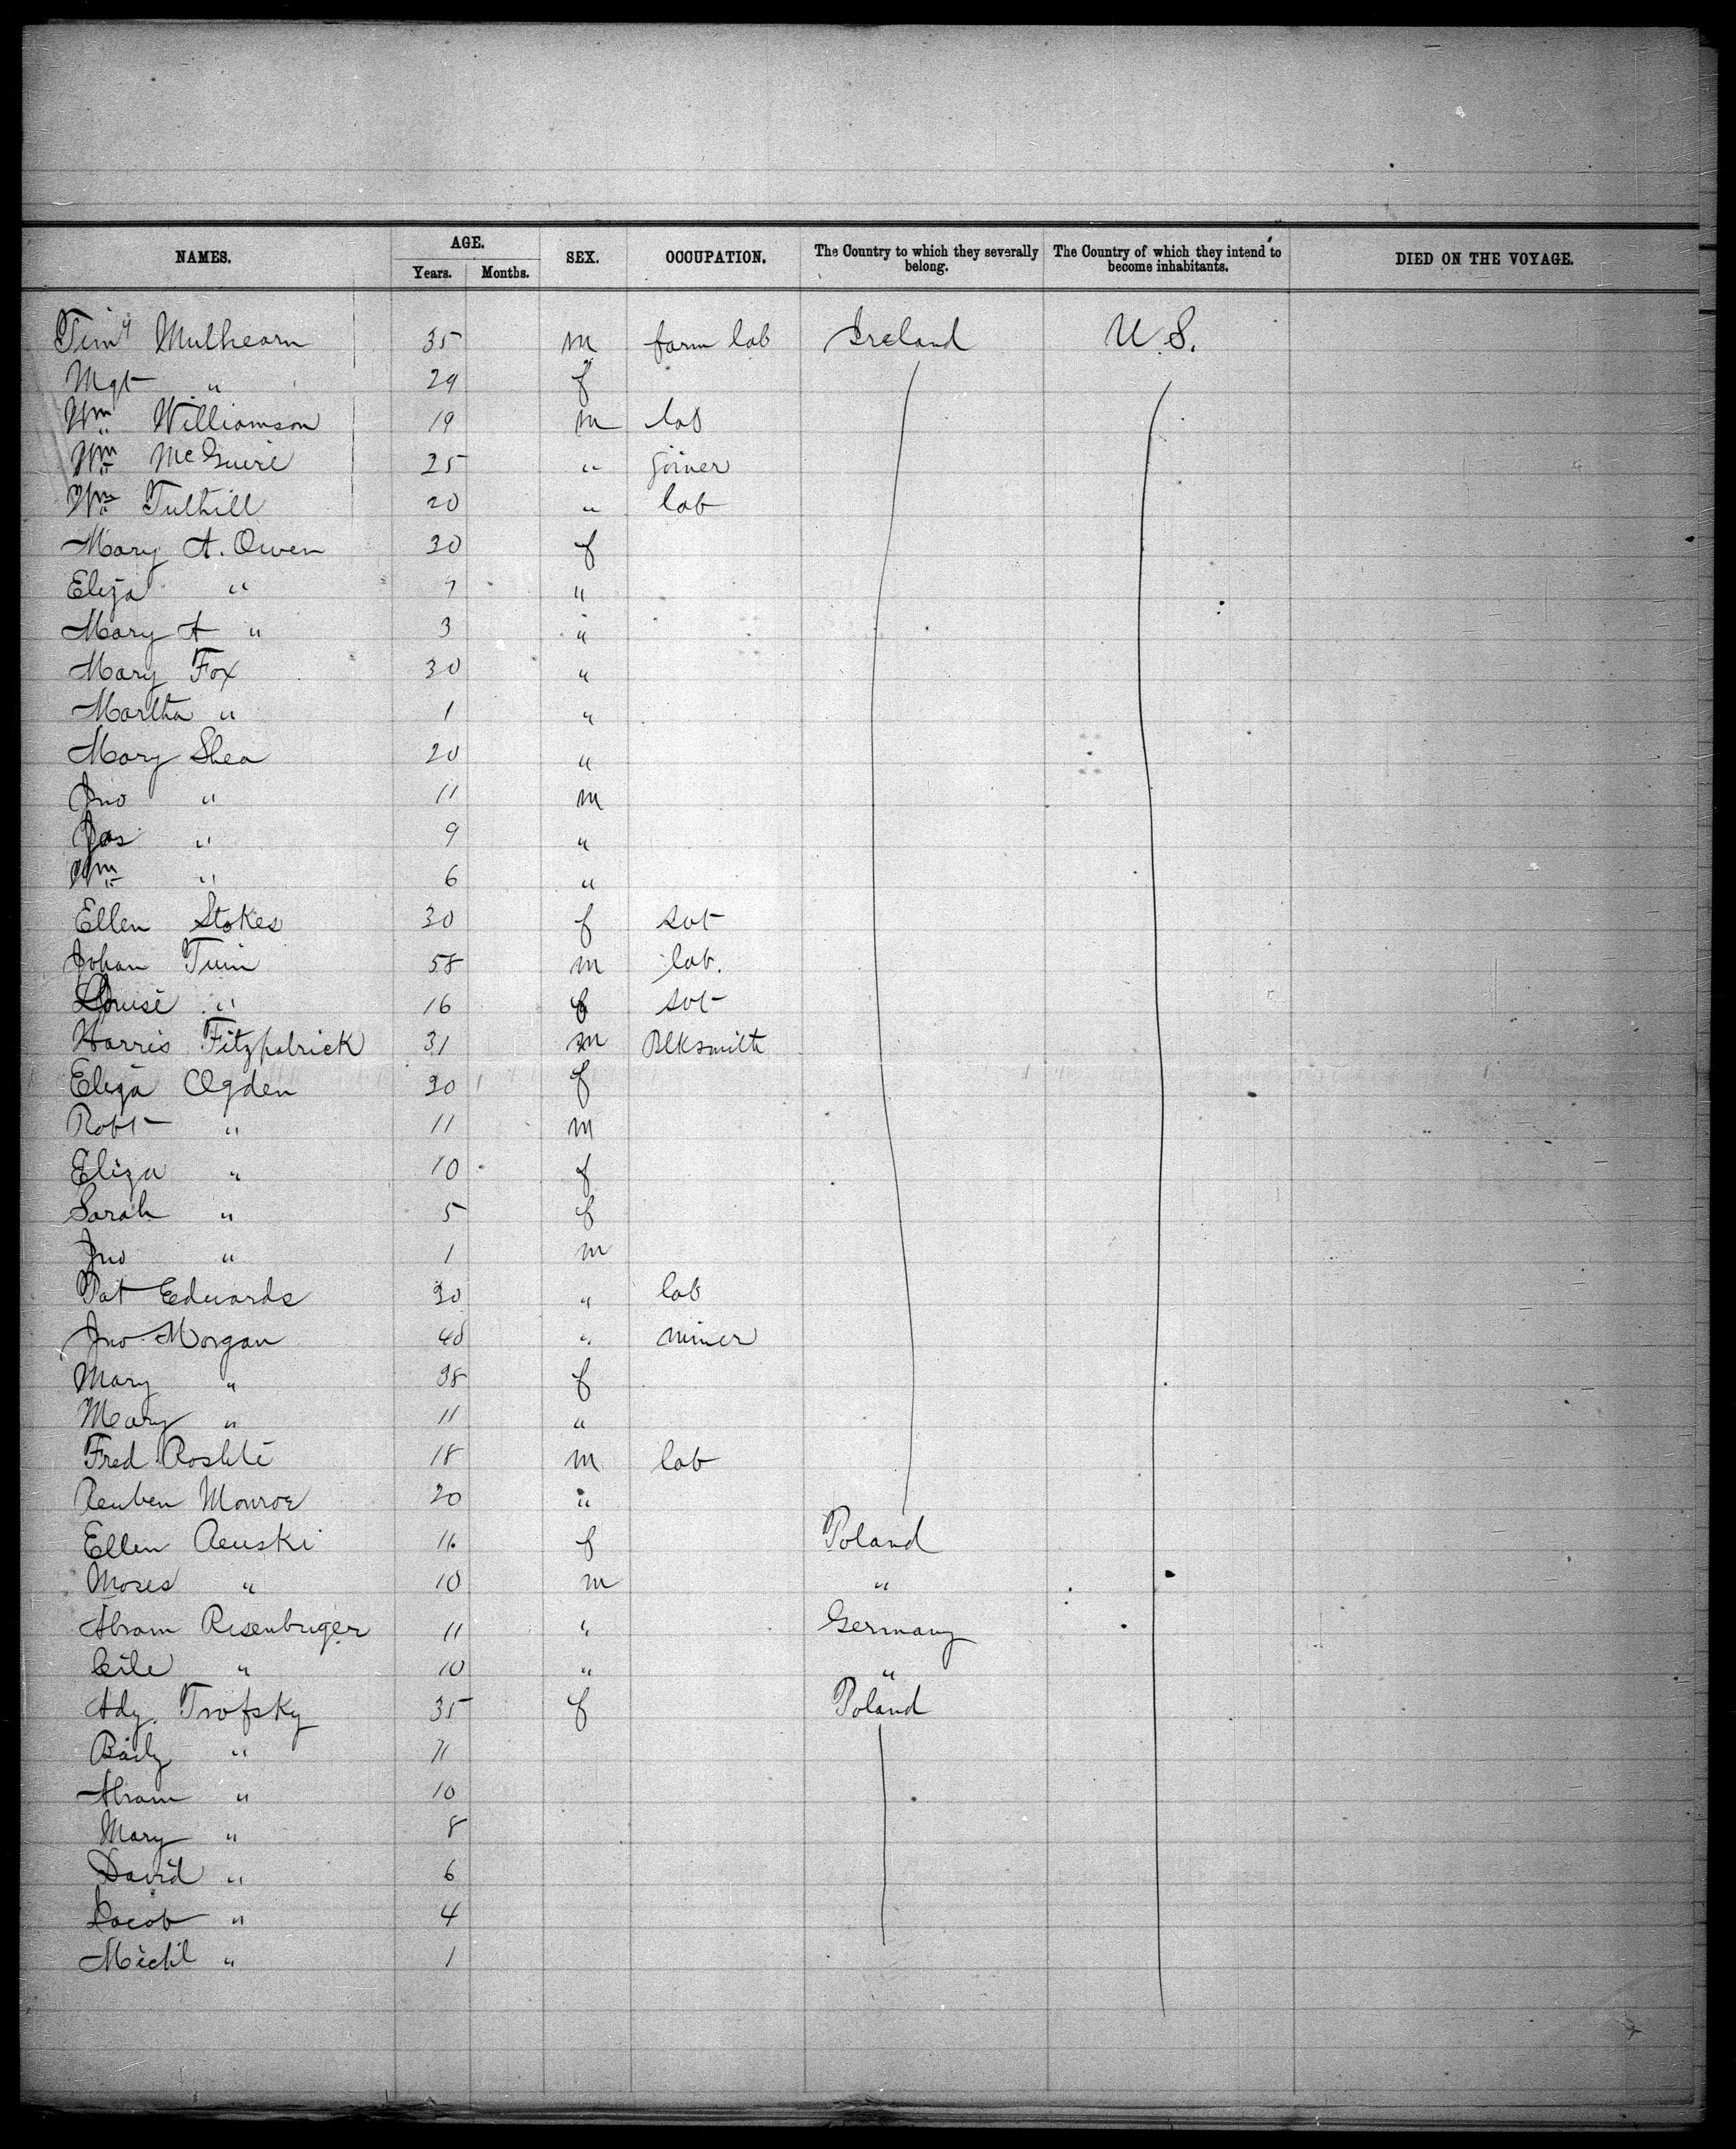 NAMES. AGE. SEX. OCCUPATION. The Country to which they severally belong. The Country of which they intend to become inhabitants. DIED ON THE VOYAGE.
Years. Months.
Timy Mulhearn 35 m farm lab Ireland U.S.
Mgt " 29 f
Wm Williamson 19 m lab
Wm McGuire 25 " joiner
Wm Tuthill 20 " lab
Mary A. Owen 30 f
Eliza " 7 "
Mary A " 3 "
Mary Fox 30 "
Martha " 1 "
Mary Shea 20 "
Jno " 11 m
Jas " 9 "
Wm " 6 "
Ellen Stokes 30 f svt
Johan Tuin 58 m lab.
Louise " 16 f svt
Harris Fitzpatrick 31 m Blksmith
Eliza Ogden 30 f
Robt " 11 m
Eliza " 10 f
Sarah " 5 f
Jno " 1 m
Pat Edwards 30 " lab
Jno Morgan 40 " miner
Mary " 38 f
Mary " 11 "
Fred 18 m lab
Reuben Monroe 20 "
Ellen 16 f Poland
Moses " 10 m "
Abram Risenbriger 11 " Germany
" 10 " "
Ady. Trofsky 35 f Poland
" 11
Abram " 10
Mary " 8
David " 6
Jacob " 4
Michl " 1